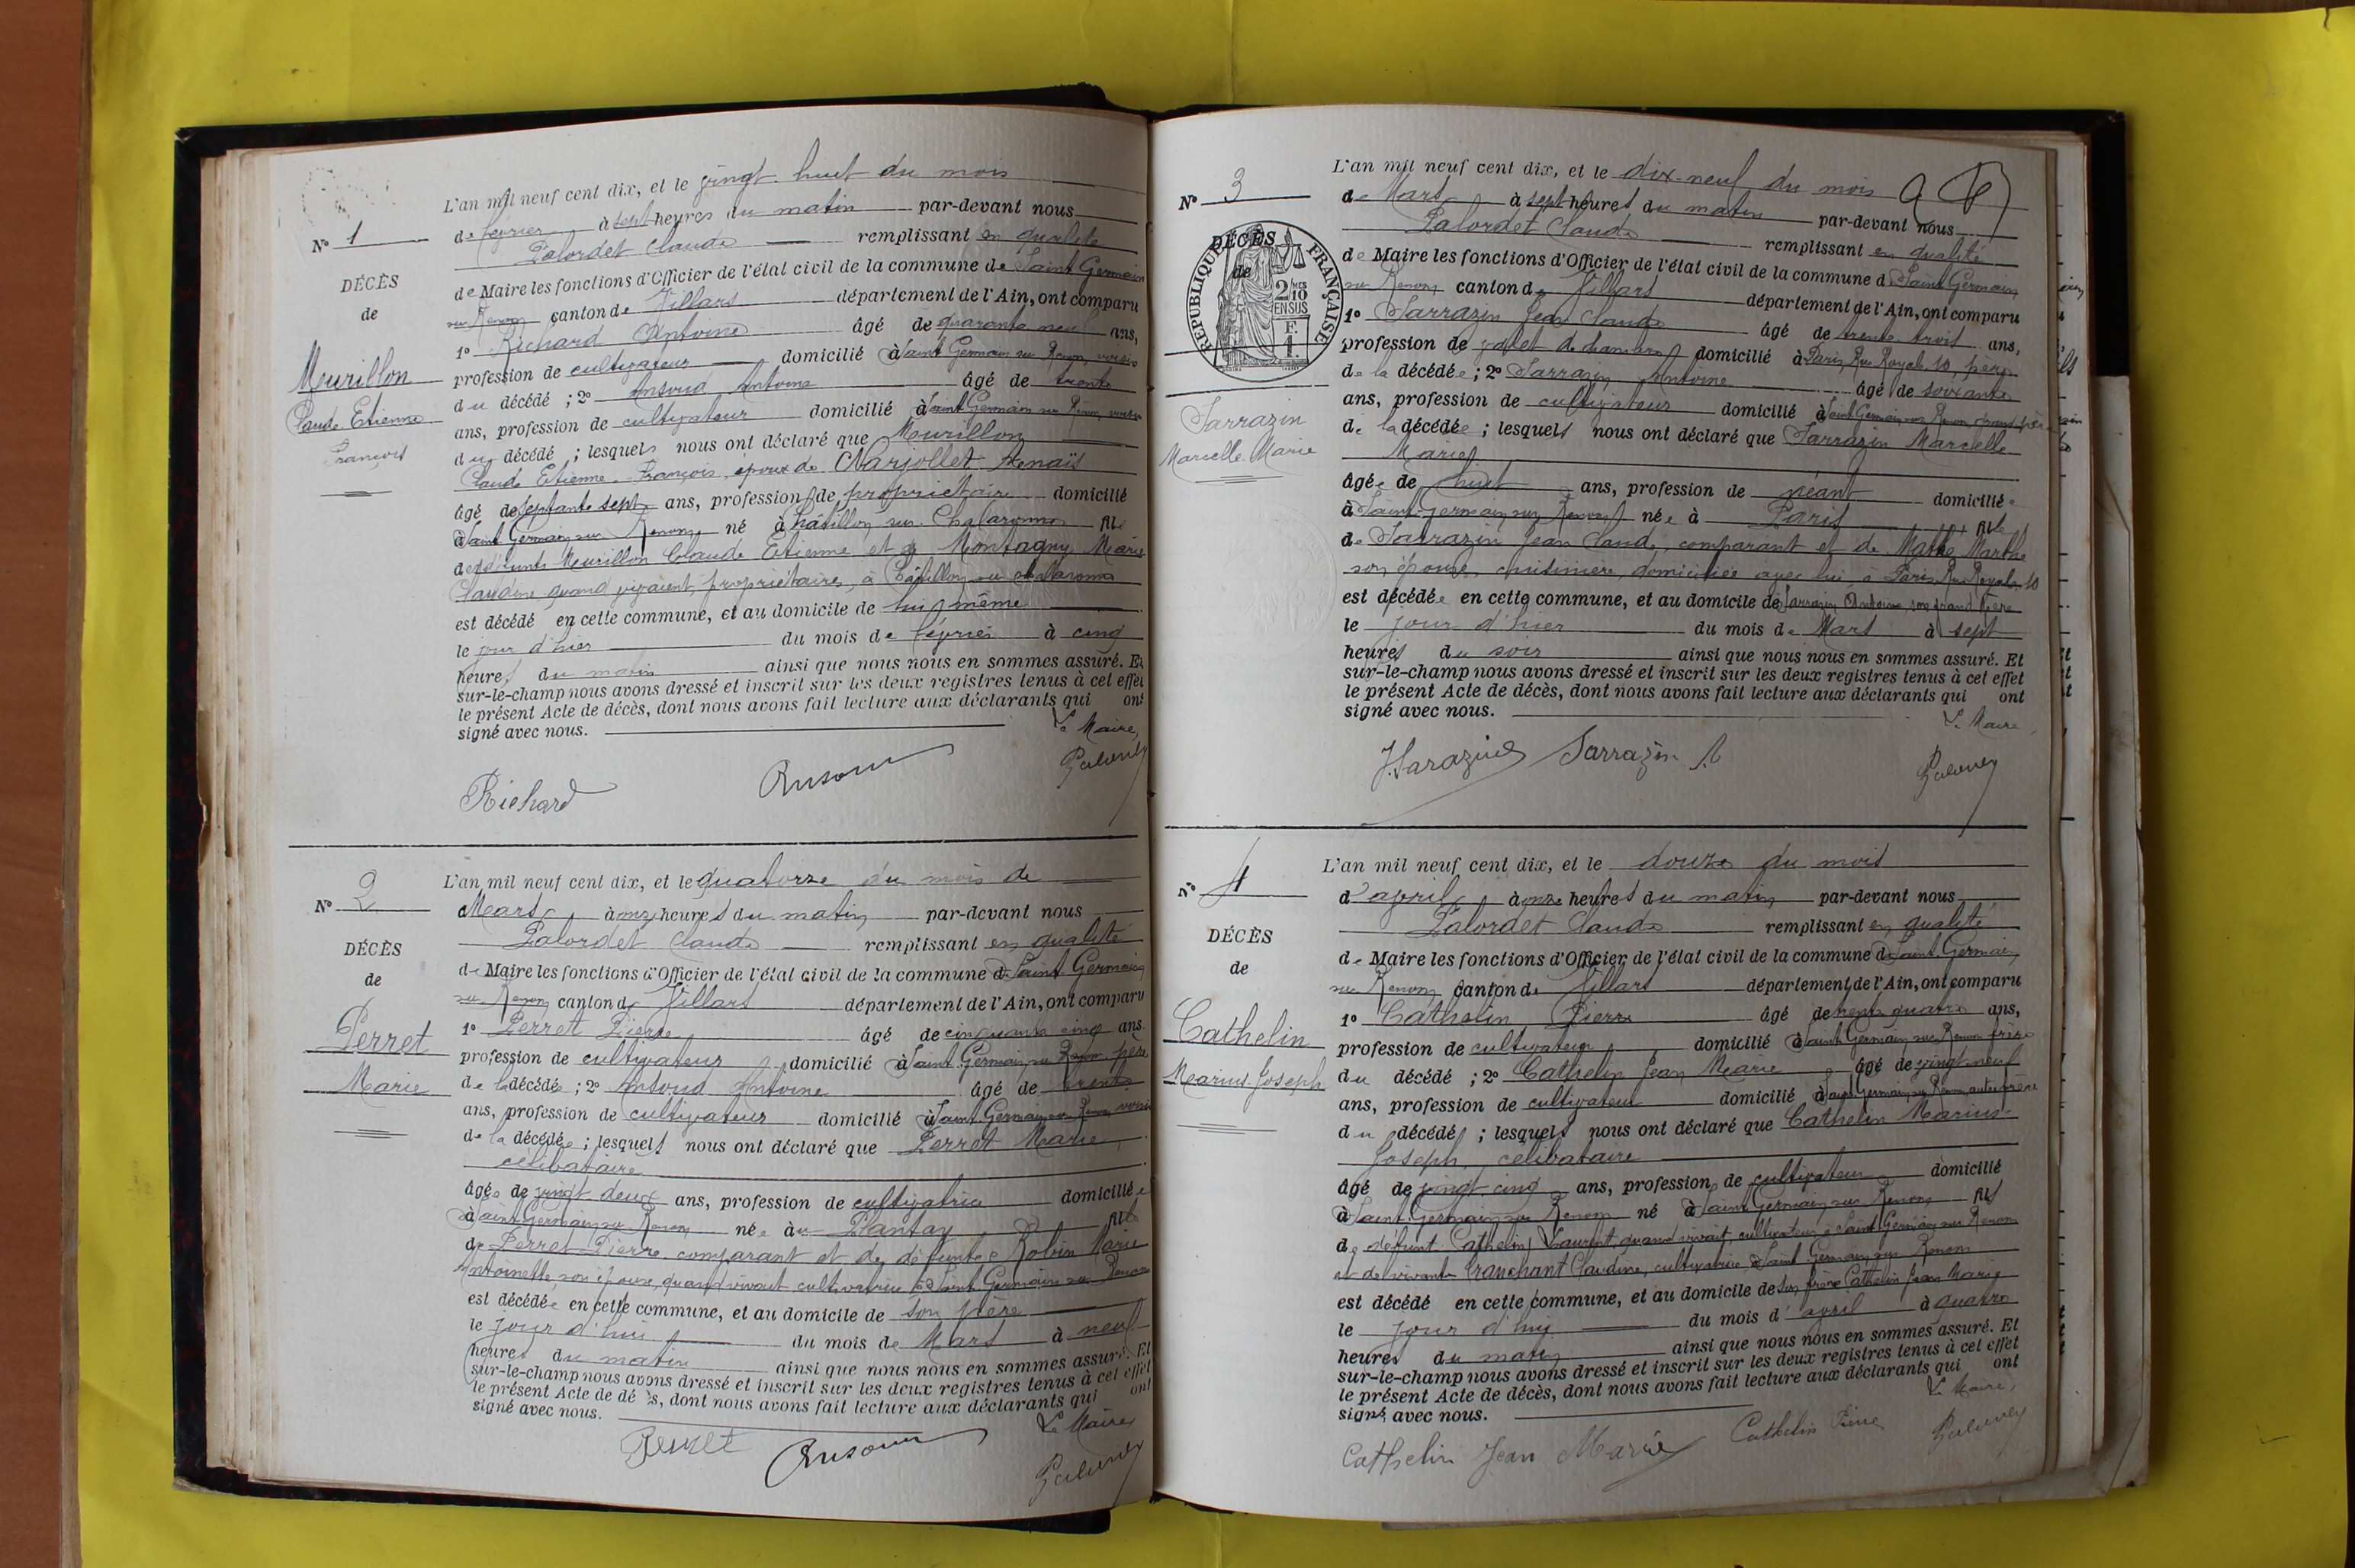 N° 1
DÉCÈS
de
Meurillon
Claude Etienne
François
L'an mil neuf cent dix, et le vingt huit du mois
de février à sept heures du matin par-devant nous
Palordet Claude remplissant en qualité
de Maire les fonctions d'Officier de l'état civil de la commune de Saint Germain
sur Renon canton de Villars département de l'Ain, ont comparu
1° Richard Antoine âgé de quarante neuf ans,
profession de cultivateur domicilié à Saint Germain sur Renon, voisin
du décédé ; 2° Ansoud Antoine âgé de trente
ans, profession de cultivateur domicilié à Saint Germain sur Renon, voisin
du décédé ; lesquels nous ont déclaré que Meurillon
Claude Etienne François, époux de Narjollet
âgé de septante sept ans, profession de propriétaire domicilié
à Saint Germain sur Renon né à Châtillon sur Chalaronne fils
de défunts Meurillon Claude Etienne et de Montagny Marie
Claudine quand vivaient, propriétaires, à Châtillon sur Chalaronne
est décédé en cette commune, et au domicile de lui même
le jour d'hier du mois de février à cinq
heures du matin ainsi que nous nous en sommes assuré. Et
sur-le-champ nous avons dressé et inscrit sur les deux registres tenus à cet effet
le présent Acte de décès, dont nous avons fait lecture aux déclarants qui ont
signé avec nous.
Le Maire,
Richard Ansoud
N° 2
DÉCÈS
de
Perret
Marie
L'an mil neuf cent dix, et le quatorze du mois de
Mars à onze heures du matin par-devant nous
Palordet Claude remplissant en qualité
de Maire les fonctions d'Officier de l'état civil de la commune de Saint Germain
sur Renon canton de Villars département de l'Ain, ont comparu
1° Perret Pierre âgé de cinquante cinq ans
profession de cultivateur domicilié à Saint Germain sur Renon père
de la décédée ; 2° Ansoud Antoine âgé de trente
ans, profession de cultivateur domicilié à Saint Germain sur Renon voisin
de la décédée ; lesquels nous ont déclaré que Perret Marie,
célibataire
âgée de vingt deux ans, profession de cultivatrice domiciliée
à Saint Germain sur Renon née au Plantay fille
de Perret Pierre comparant et de défunte Robin Marie
Antoinette, son épouse, quand vivait cultivatrice à Saint Germain sur Renon
est décédée en cette commune, et au domicile de son père
le jour d'hui du mois de Mars à neuf
heures du matin ainsi que nous nous en sommes assuré. Et
sur-le-champ nous avons dressé et inscrit sur les deux registres tenus à cet effet
le présent Acte de dé s, dont nous avons fait lecture aux déclarants qui ont
signé avec nous.
Le Maire
Perret Ansoud
N° 3
RÉPUBLIQUE FRANÇAISE
2 MES
10
EN SUS
F.
1.
DÉCÈS
de
Sarrazin
Marcelle Marie
L'an mil neuf cent dix, et le dix-neuf du mois
de Mars à sept heures du matin par-devant nous
Palordet Claude remplissant en qualité
de Maire les fonctions d'Officier de l'état civil de la commune de Saint Germain
sur Renon canton de Villars département de l'Ain, ont comparu
1° Sarrazin Jean Claude âgé de trente trois ans,
profession de valet de chambre domicilié à Paris, Rue Royale 10, père
de la décédée ; 2° Sarrazin Antoine âgé de soixante
ans, profession de cultivateur domicilié à Saint Germain sur Renon grand père
de la décédée ; lesquels nous ont déclaré que Sarrazin Marcelle
Marie
âgée de huit ans, profession de néant domiciliée
à Saint Germain sur Renon née à Paris fille
de Sarrazin Jean Claude, comparant et de Mathé Marthe
son épouse, cuisinière, domiciliée avec lui, à Paris, Rue Royale, 10
est décédée en cette commune, et au domicile de Sarrazin Antoine, son grand père
le jour d'hier du mois de Mars à sept
heures du soir ainsi que nous nous en sommes assuré. Et
sur-le-champ nous avons dressé et inscrit sur les deux registres tenus à cet effet
le présent Acte de décès, dont nous avons fait lecture aux déclarants qui ont
signé avec nous.
Le Maire,
J. Sarazin Sarrazin A
N° 4
DÉCÈS
de
Cathelin
Marius Joseph
L'an mil neuf cent dix, et le douze du mois
d'avril à onze heures du matin par-devant nous
Palordet Claude remplissant en qualité
de Maire les fonctions d'Officier de l'état civil de la commune de Saint Germain
sur Renon canton de Villars département de l'Ain, ont comparu
1° Cathelin Pierre âgé de trente quatre ans,
profession de cultivateur domicilié à Saint Germain sur Renon frère
du décédé ; 2° Cathelin Jean Marie âgé de vingt neuf
ans, profession de cultivateur domicilié à Saint Germain sur Renon, autre frère
du décédé ; lesquels nous ont déclaré que Cathelin Marius
Joseph, célibataire
âgé de vingt cinq ans, profession de cultivateur domicilié
à Saint Germain sur Renon né à Saint Germain sur Renon fils
de défunt Cathelin Laurent, quand vivait cultivateur à Saint Germain sur Renon
et de vivante Tranchant Claudine, cultivatrice, à Saint Germain sur Renon
est décédé en cette commune, et au domicile de son frère Cathelin Jean Marie
le jour d'hui du mois d'avril à quatre
heures du matin ainsi que nous nous en sommes assuré. Et
sur-le-champ nous avons dressé et inscrit sur les deux registres tenus à cet effet
le présent Acte de décès, dont nous avons fait lecture aux déclarants qui ont
signé avec nous.
Le Maire,
Cathelin Jean Marie Cathelin Pierre